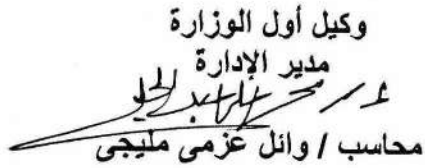 وكيل أول الوزارة
مدير الإدارة
محاسب / وائل عزمى مليجى